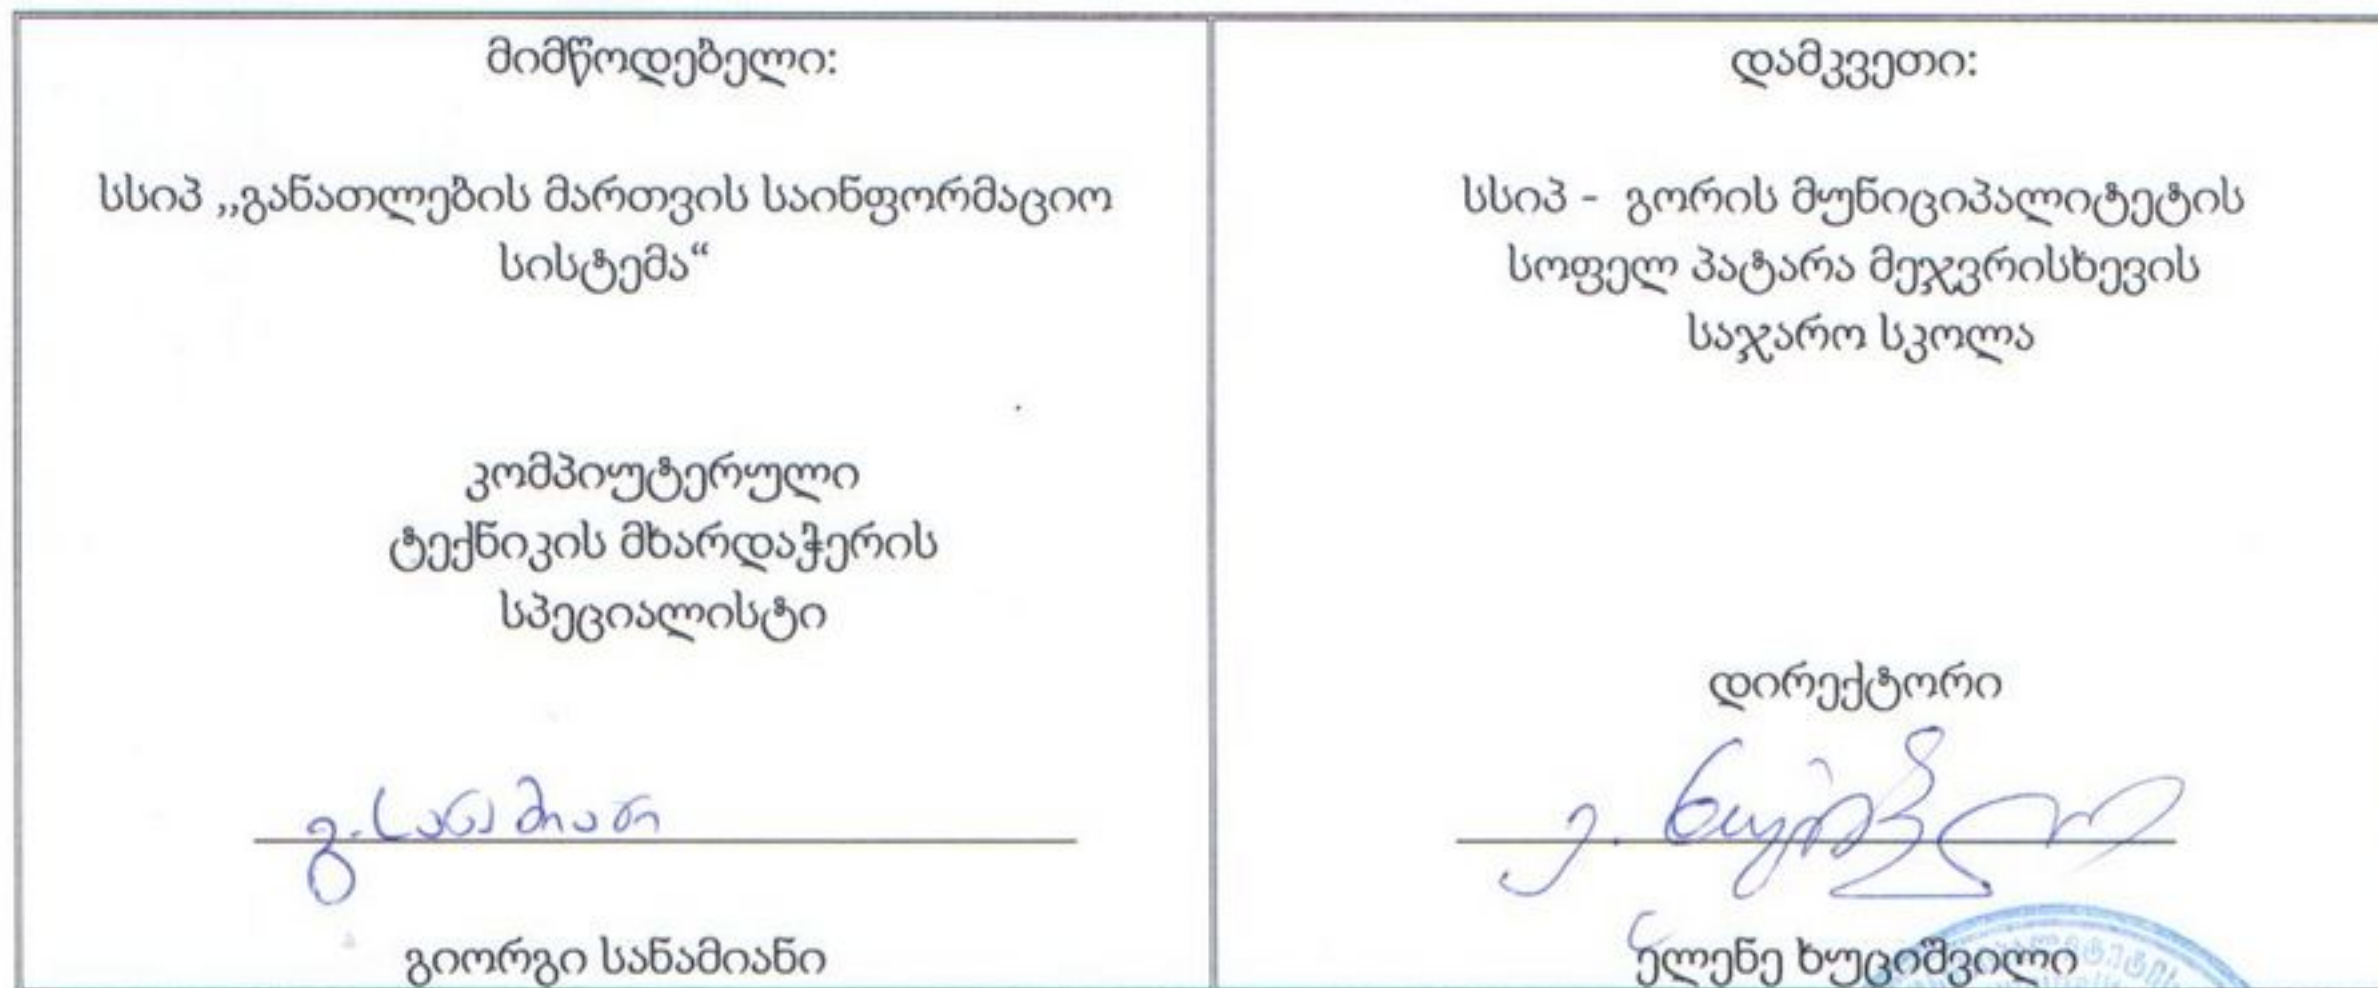 მიმწოდებელი:
სსიპ ,,განათლების მართვის საინფორმაციო
სისტემა“
კომპიუტერული
ტექნიკის მხარდაჭერის
სპეციალისტი
გ. სანამიანი
გიორგი სანამიანი
დამკვეთი:
სსიპ - გორის მუნიციპალიტეტის
სოფელ პატარა მეჯვრისხევის
საჯარო სკოლა
დირექტორი
ელენე ხუციშვილი